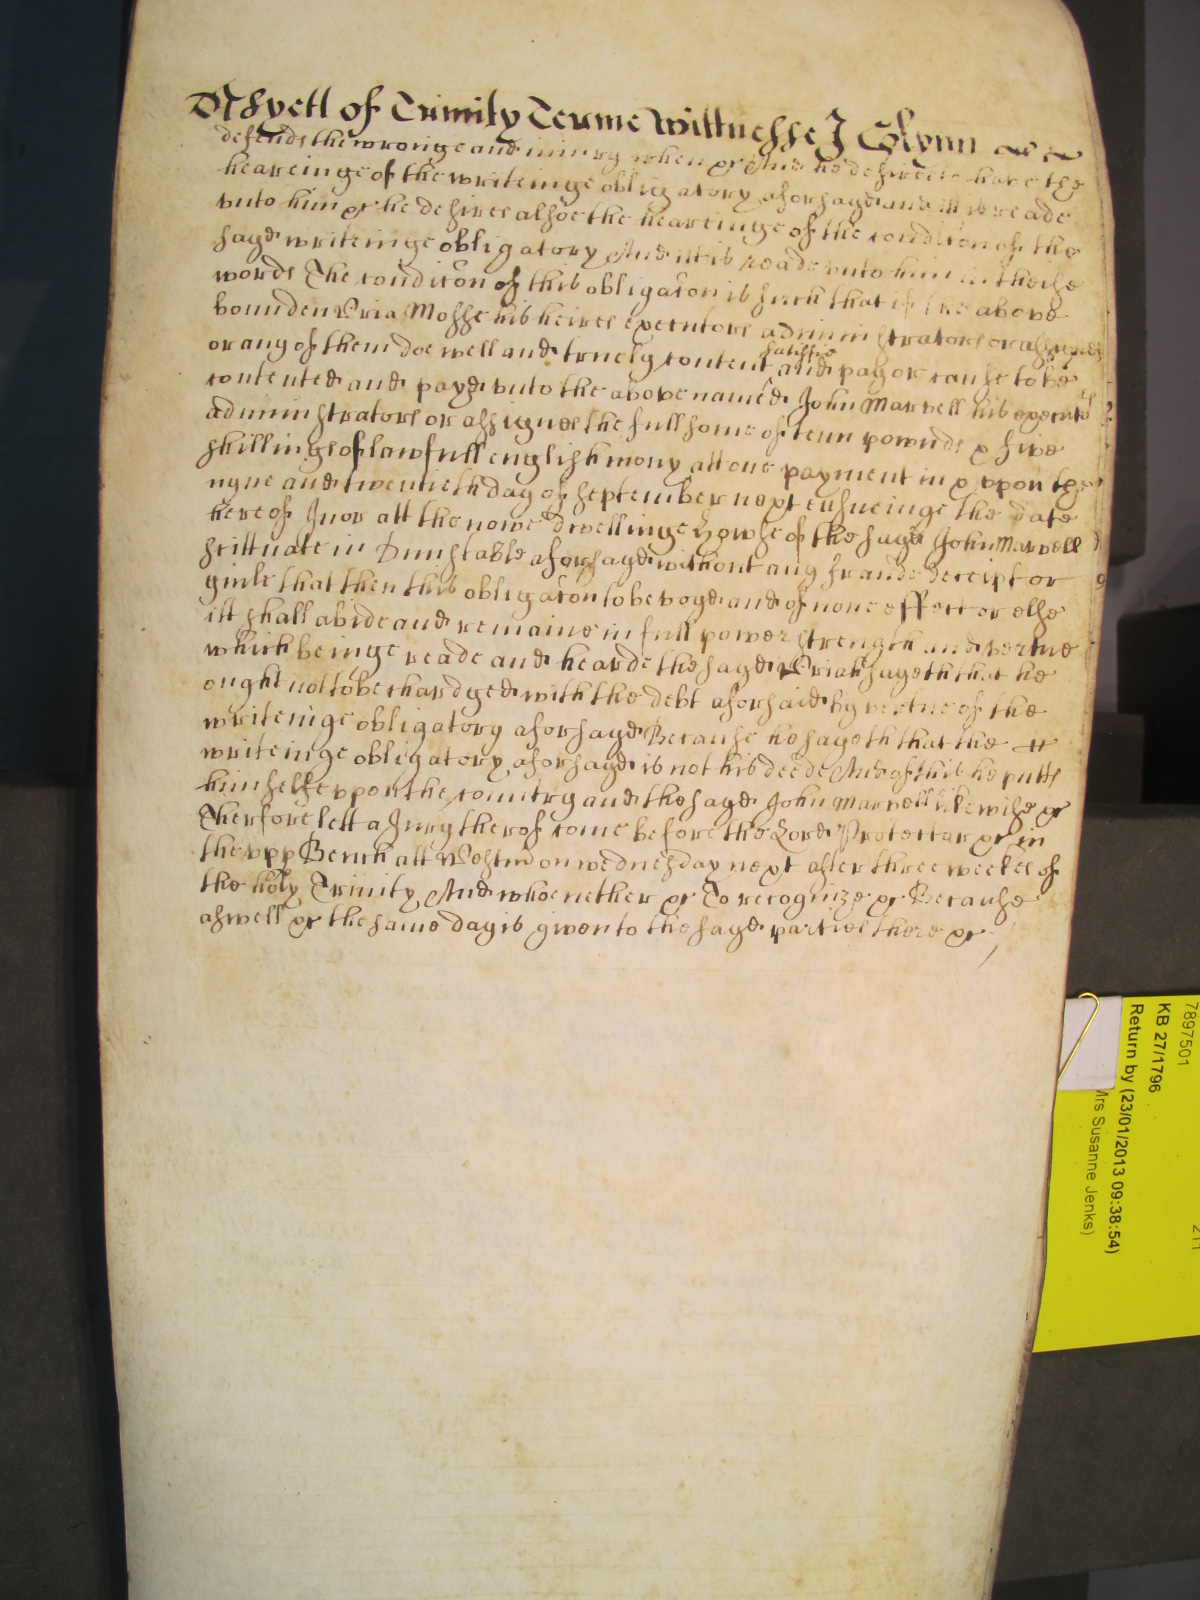 As yett of Trinity Terme Wittnesse J Glynn
defends the wronge and iniury when &c And he desireth to have the
heareinge of the writeinge obligatory aforsayd and itt is reade
vnto him &c he desires alsoe the heareinge of the condicon of the
sayd writeinge obligatory And itt is reade vnto him in theise
words The condicon of this obligacon is such that if the above
bounden Vria Mosse his heires executors administrators or assignes
or any of them doe well and truely content satisfie and pay or cause to be
contented and payd vnto the above named John Marvell his executors
administrators or assignes the full some of tenn pownds & five
shillings of lawfull english mony att one payment in & vpon the
nyne and twentieth day of September next ensueinge the date
hereof In or att the nowe dwellinge howse of the sayd John Marvell
scittuate in Dunstable aforsayd without any fraude deceipt or
guile that then this obligacon to be voyd and of none effect or else
itt shall abide and remaine in full power strength and vertue
which beinge reade and hearde the sayd Vriah sayeth that he
ought not to be chardged with the debt aforsaid by vertue of the
writeinge obligatory aforsayd Because he sayeth that the
writeinge obligatory aforsayd is not his deede And of this he putts
himselfe vpon the country and the sayd John Marvell likewise &c
Therfore lett a Jury therof come before the Lord Protector &c in
the vpp Bench att Westm on wednesday next after three weekes of
the holy Trinity And whoe nether &c To recognize &c Because
aswell &c the same day is given to the sayd parties there &c
7897501
KB 27/1796
Return by (23/01/2013 09:38:54)
Mrs Susanne Jenks)